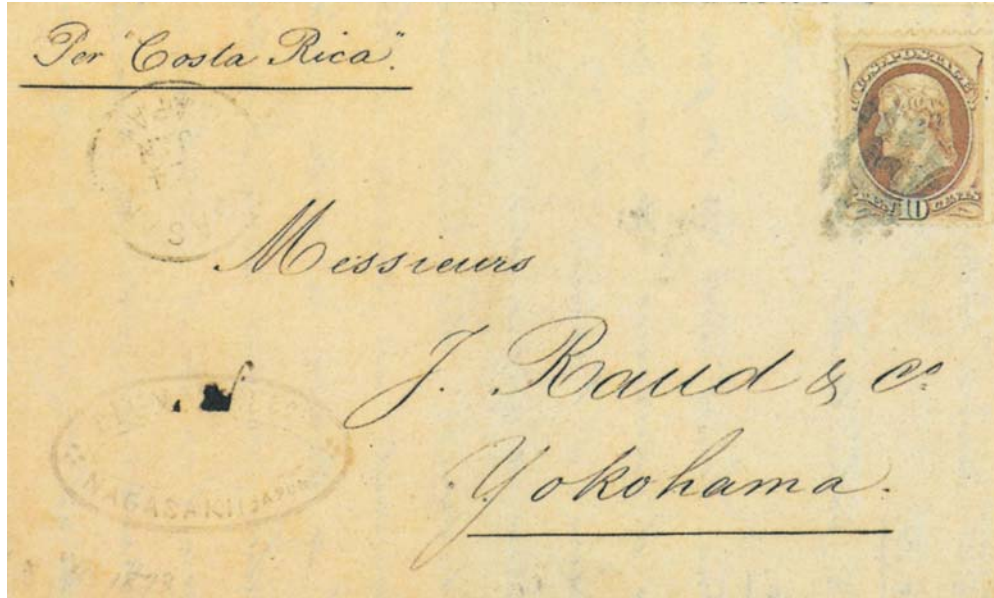 Per "Costa Rica".
U.S. POSTAGE
10
Messieurs
J. Raud & Co.
Yokohama.
NAGASAKI JAPON
1873